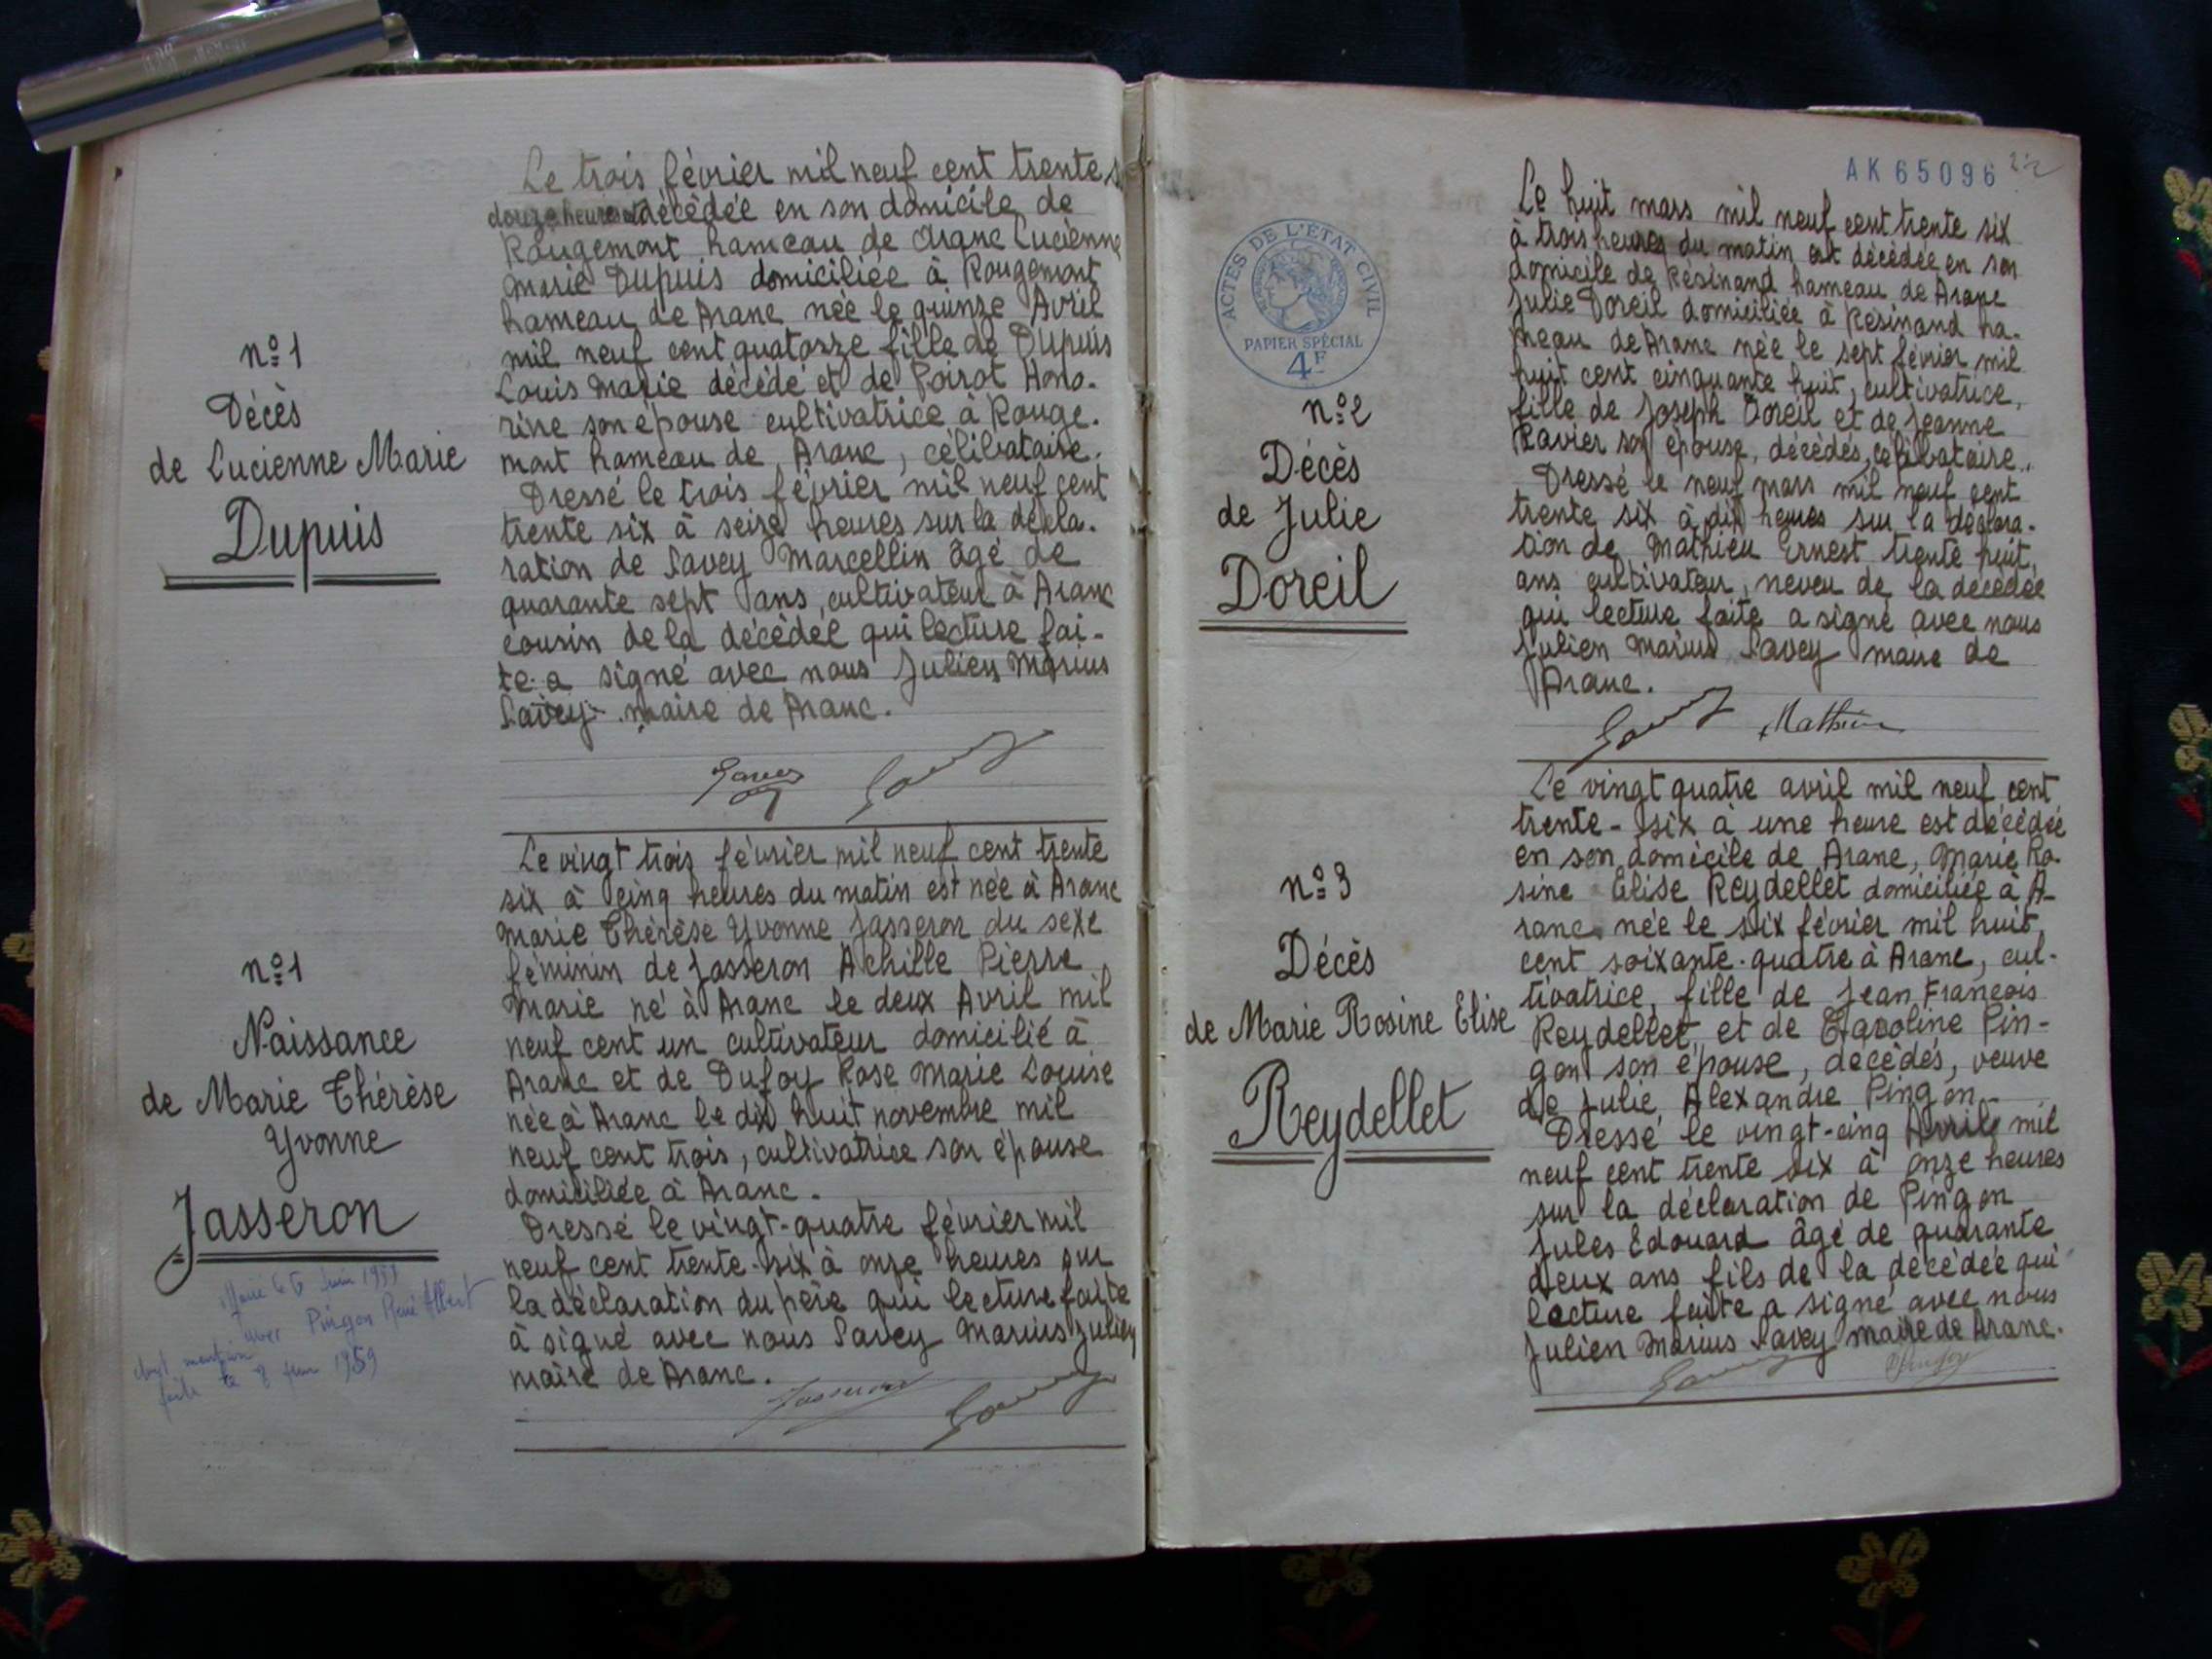 n° 1
Décès
de Lucienne Marie
Dupuis
Le trois février mil neuf cent trente
douze heures décédée en son domicile de
Rougemont hameau de Aranc Lucienne
Marie Dupuis domiciliée à Rougemont
hameau de Aranc née le quinze Avril
mil neuf cent quatorze fille de Dupuis
Louis Marie décédé et de Poirot Hono-
rine son épouse cultivatrice à Rouge-
mont hameau de Aranc, célibataire.
Dressé le trois février mil neuf cent
trente six à seize heures sur la décla-
ration de Savey Marcellin âgé de
quarante sept ans, cultivateur à Aranc
cousin de la décédée qui lecture fai-
te a signé avec nous Julien Marius
Savey maire de Aranc.
n° 1
Naissance
de Marie Thérèse
Yvonne
Jasseron
Marié le 6 Juin 1959
avec Pingon René Albert
dont mention
faite le 8 juin 1959
Le vingt trois février mil neuf cent trente
six à cinq heures du matin est née à Aranc
Marie Thérèse Yvonne Jasseron du sexe
féminin de Jasseron Achille Pierre
Marie né à Aranc le deux Avril mil
neuf cent un cultivateur domicilié à
Aranc et de Dufoy Rose Marie Louise
née à Aranc le dix huit novembre mil
neuf cent trois, cultivatrice son épouse
domiciliée à Aranc.
Dressé le vingt-quatre février mil
neuf cent trente-six à onze heures sur
la déclaration du père qui lecture faite
à signé avec nous Savey Marius Julien
maire de Aranc.
Jasseron
AK 65096
ACTES DE L'ÉTAT CIVIL
PAPIER SPÉCIAL
4F
n° 2
Décès
de Julie
Doreil
Le huit mars mil neuf cent trente six
à trois heures du matin est décédée en son
domicile de Résinand hameau de Aranc
Julie Doreil domiciliée à Résinand ha-
meau de Aranc née le sept février mil
huit cent cinquante huit, cultivatrice,
fille de Joseph Doreil et de Jeanne
Ravier son épouse, décédés, célibataire.
Dressé le neuf mars mil neuf cent
trente six à dix heures sur la déclara-
tion de Mathieu Ernest trente huit
ans cultivateur, neveu de la décédée
qui lecture faite a signé avec nous
Julien Marius Savey maire de
Aranc.
Mathieu
n° 3
Décès
de Marie Rosine Elise
Reydellet
Le vingt quatre avril mil neuf cent
trente-six à une heure est décédée
en son domicile de Aranc, Marie Ro-
sine Elise Reydellet domiciliée à A-
ranc née le six février mil huit
cent soixante-quatre à Aranc, cul-
tivatrice, fille de Jean François
Reydellet et de Caroline Pin-
gon son épouse, décédés, veuve
de Julie Alexandre Pingon
Dressé le vingt-cinq Avril mil
neuf cent trente six à onze heures
sur la déclaration de Pingon
Jules Edouard âgé de quarante
deux ans fils de la décédée qui
lecture faite a signé avec nous
Julien Marius Savey maire de Aranc.